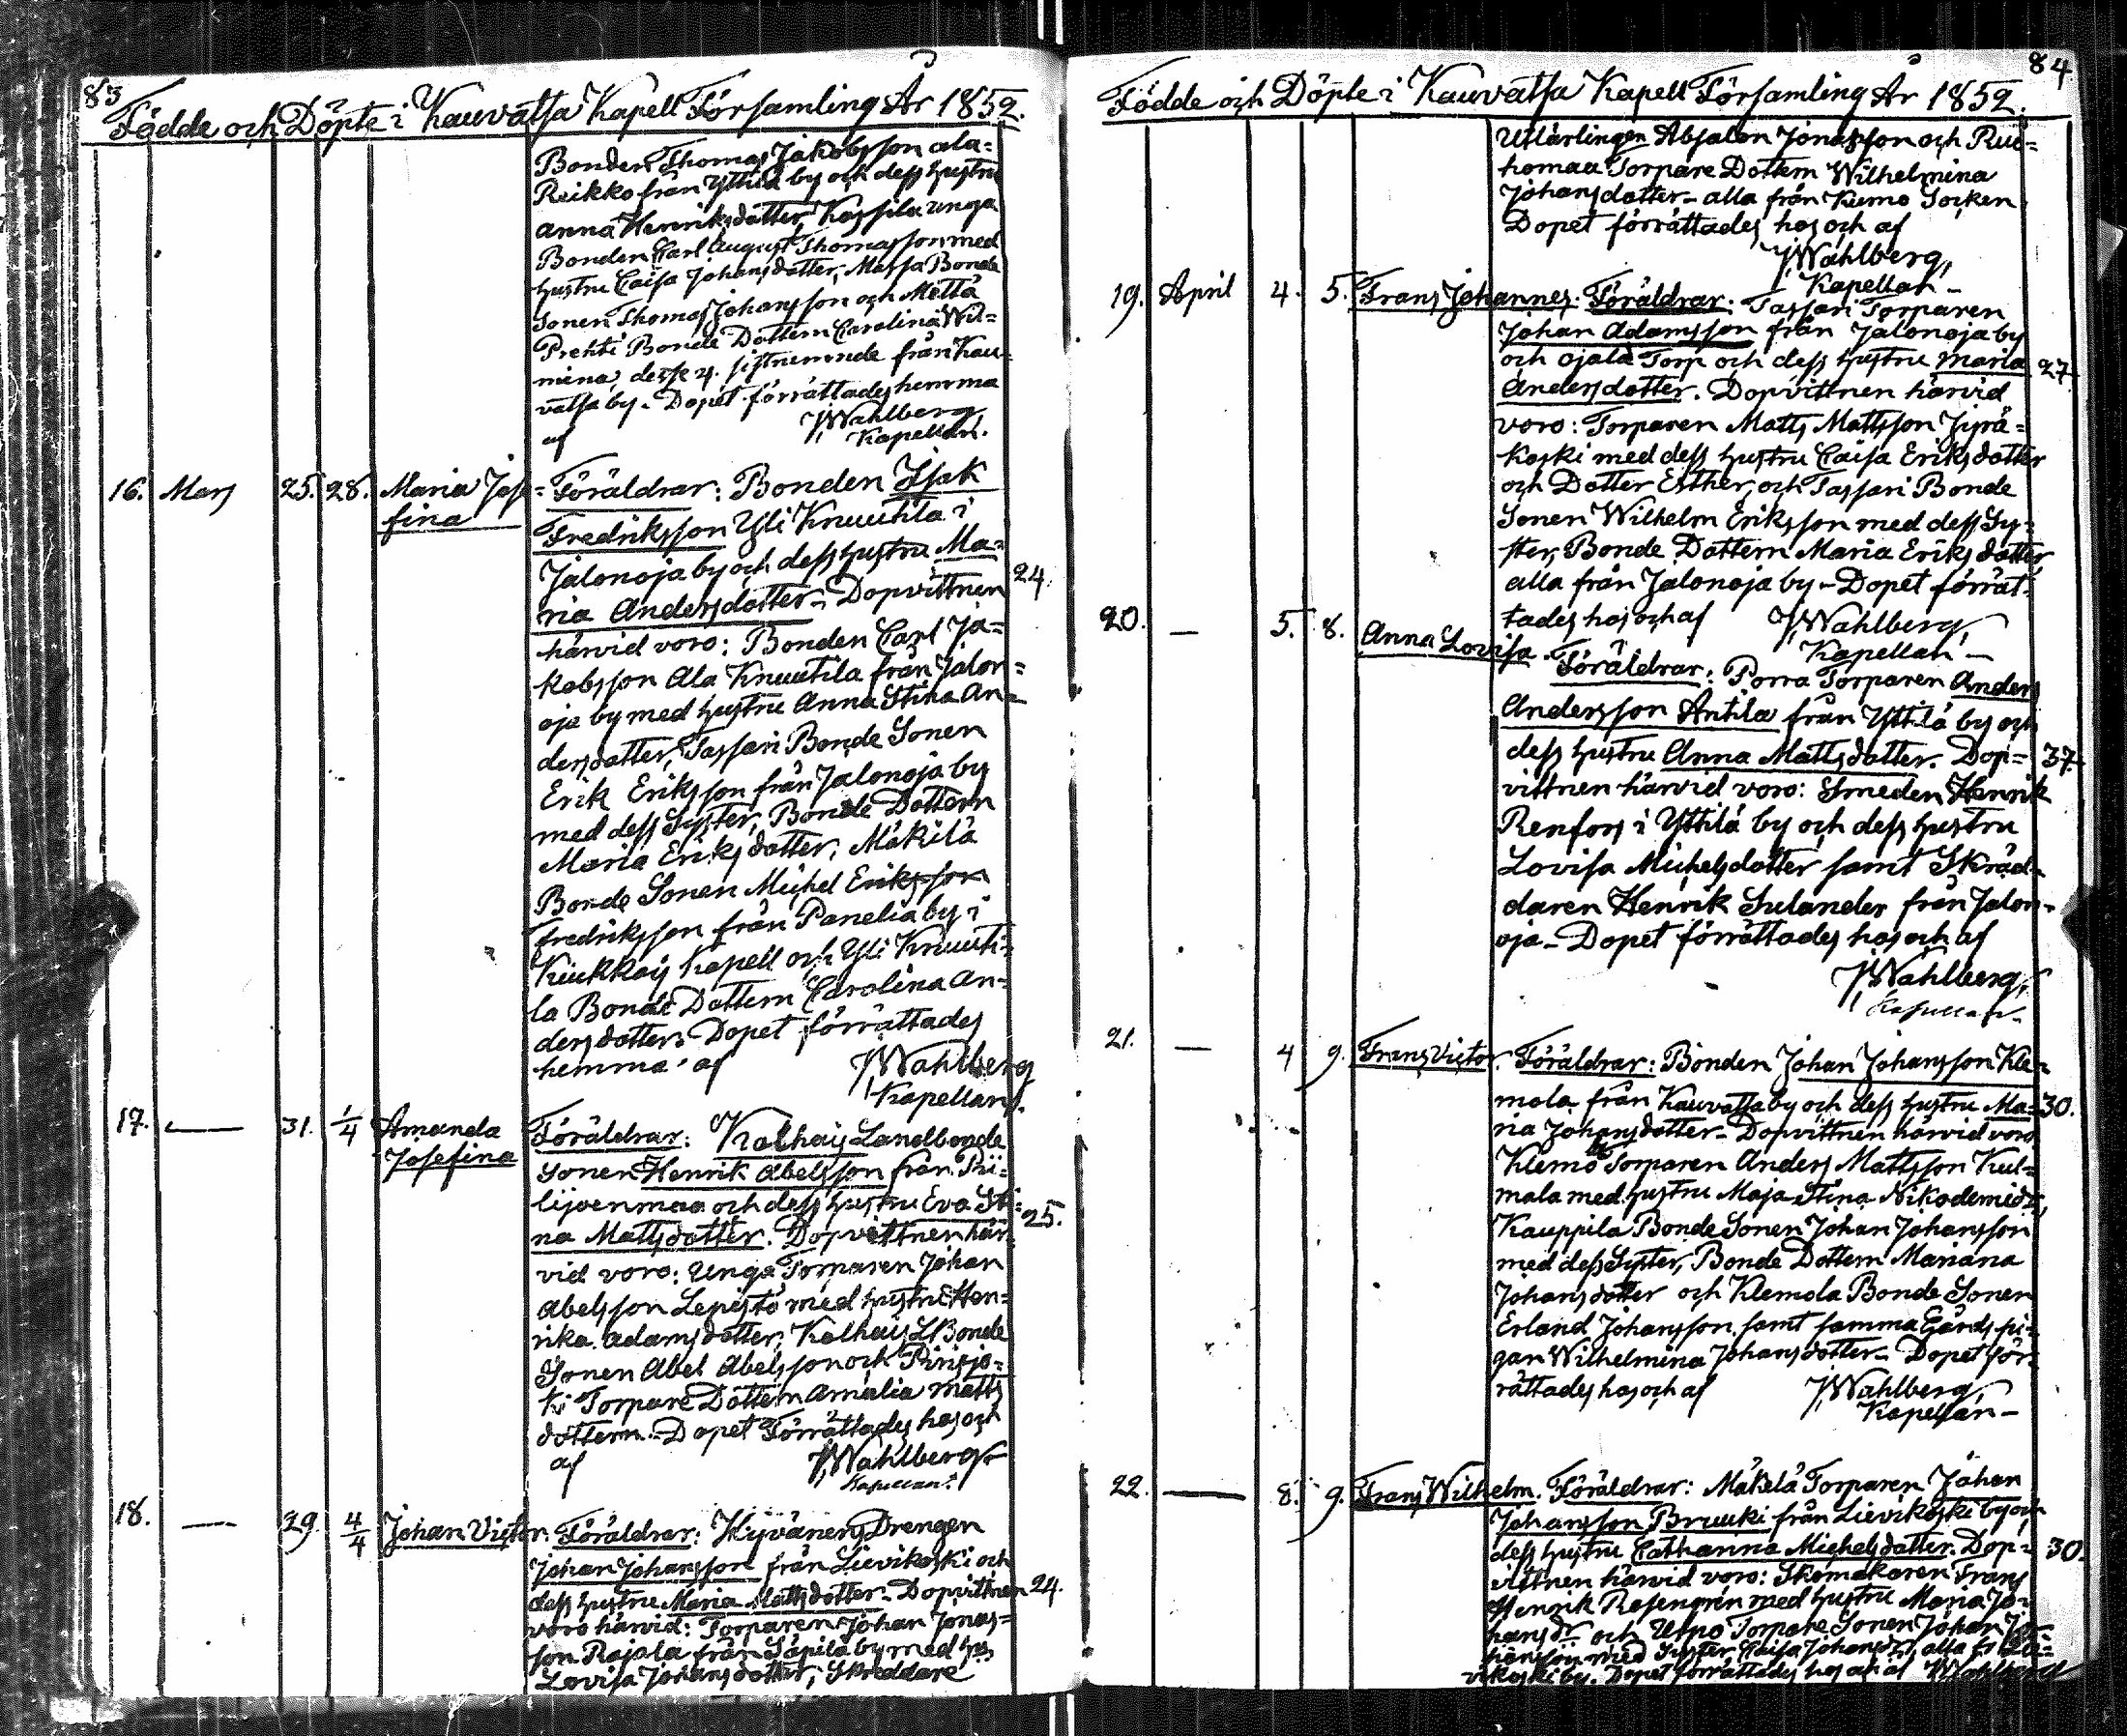 83
Födde och Döpte i Kauvatsa Kapell Församling År 1852.
Bonden Thomas Jakobsson ala=
Reikko från Yttilä by och dess hustru
Anna Henriksdotter, Kässilä unga
Bonden Carl August Thomasson med
hustru Caisa Johansdotter, Massa Bonde
Sonen Thomas Johansson och Mettä
Prehti Bonde Dottern Carolina Wil=
mina, desse 4. sistnemnde från Kau=
vatsa by. Dopet förrättades hemma
af J Wahlberg
Kapellan.
16. Mars 25. 28. Maria Jose=
fina
Föräldrar: Bonden Isak
Fredriksson Yli Knuutila i
Jalonoja by och dess hustru Ma=
24.
ria Andersdotter. Dopvittnen
härvid voro: Bonden Carl Ja=
kobsson Ala Knuutila från Jalon=
oja by med hustru Anna Stina An=
dersdotter, Tassari Bonde Sonen
Erik Eriksson från Jalonoja by
med dess Syster, Bonde Dottern
Maria Eriksdotter, Mäkilä
Bonde Sonen Michel Eriksson
fredriksson från Panelia by i
Kiukkais Kapell och Yli Knuuti=
la Bonde Dottern Carolina An=
dersdotter. Dopet förrättades
hemma af J Wahlberg
Kapellan.
17. — 31. 1/4 Amanda
Josefina
Föräldrar: Kalhais Landbonde
Sonen Henrik Abelsson från Pii=
lijoenmaa och dess hustru Eva Sti=
25.
na Mattsdotter. Dopvittnen här=
vid voro: Unga Torparen Johan
Abelsson Lepistö med hustru Hen=
rika Adamsdotter, Kalhais LBonde
Sonen Abel Abelsson och Pirisjo=
ki Torpare Dottern Amalia Matts
dottern. Dopet Förrättades hos och
af J Wahlberg
Kapellan.
18. — 29. 4/4 Johan Victor. Föräldrar: Hyvänens Drengen
Johan Johansson från Lievikoski och
dess hustru Maria Mattsdotter. Dopvittnen 24.
voro härvid: Torparen Johan Jonas=
son Rajala från Säpilä by med hus
Lovisa Johansdotter, Skreddare
84
Födde och Döpte i Kauvatsa Kapell Församling År 1852.
Utlärlingen Absalon Jonasson och Ruo=
homaa Torpare Dottern Wilhelmina
Johansdotter - alla från Kumo Socken
Dopet förrättades hos och af
J Wahlberg,
Kapellan -
19. April 4. 5. Frans Johannes. Föräldrar: Tassari Torparen
Johan Adamsson från Jalonoja by
och Ojala Torp och dess hustru Maria 27.
Andersdotter. Dopvittnen härvid
voro: Torparen Matts Mattsson Jyrä=
koski med dess hustru Caisa Eriksdotter
och Dotter Esther, och Tassari Bonde
Sonen Wilhelm Eriksson med dess Sy=
ster, Bonde Dottern Maria Eriksdotter,
alla från Jalonoja by - Dopet förrät=
tades hos och af J Wahlberg,
Kapellan -
20. — 5. 8. Anna Lovisa.
Föräldrar: Porra Torparen Anders
Andersson Antila från Yttilä by och
dess hustru Anna Mattsdotter. Dop= 37.
vittnen härvid voro: Smeden Henrik
Renfors i Yttilä by och dess hustru
Lovisa Michelsdotter samt Skräd=
daren Henrik Sulander från Jalon=
oja - Dopet förrättades hos och af
J Wahlberg,
Kapellan.
21. — 4 9. Frans Victor. Föräldrar: Bonden Johan Johansson Kle=
mola från Kauvatsa by och dess hustru Ma= 30.
ria Johansdotter - Dopvittnen härvid voro
Klemola Torparen Anders Mattsson Kul=
mala med hustru Maja Stina Nikodemidr,
Kauppila Bonde Sonen Johan Johansson
med dess Syster, Bonde Dottern Mariana
Johansdotter och Klemola Bonde Sonen
Erland Johansson, samt samma Gårds pi=
gan Wilhelmina Johansdotter - Dopet för=
rättades hos och af J Wahlberg,
Kapellan -
22. — 8. 9. Frans Wilhelm. Föräldrar: Mäkelä Torparen Johan
Johansson Bruuki från Lievikoski by och
dess hustru Catharina Michelsdotter. Dop= 30.
vittnen härvid voro: Skomakaren Frans
Henrik Rosengrén med hustru Maria Jo=
hansdr och Utno Torpare Sonen Johan Jo=
hansson med Syster Caisa Johansdr, alla fr Lie=
vikoski by. Dopet förrättades hos och af J Wahlberg